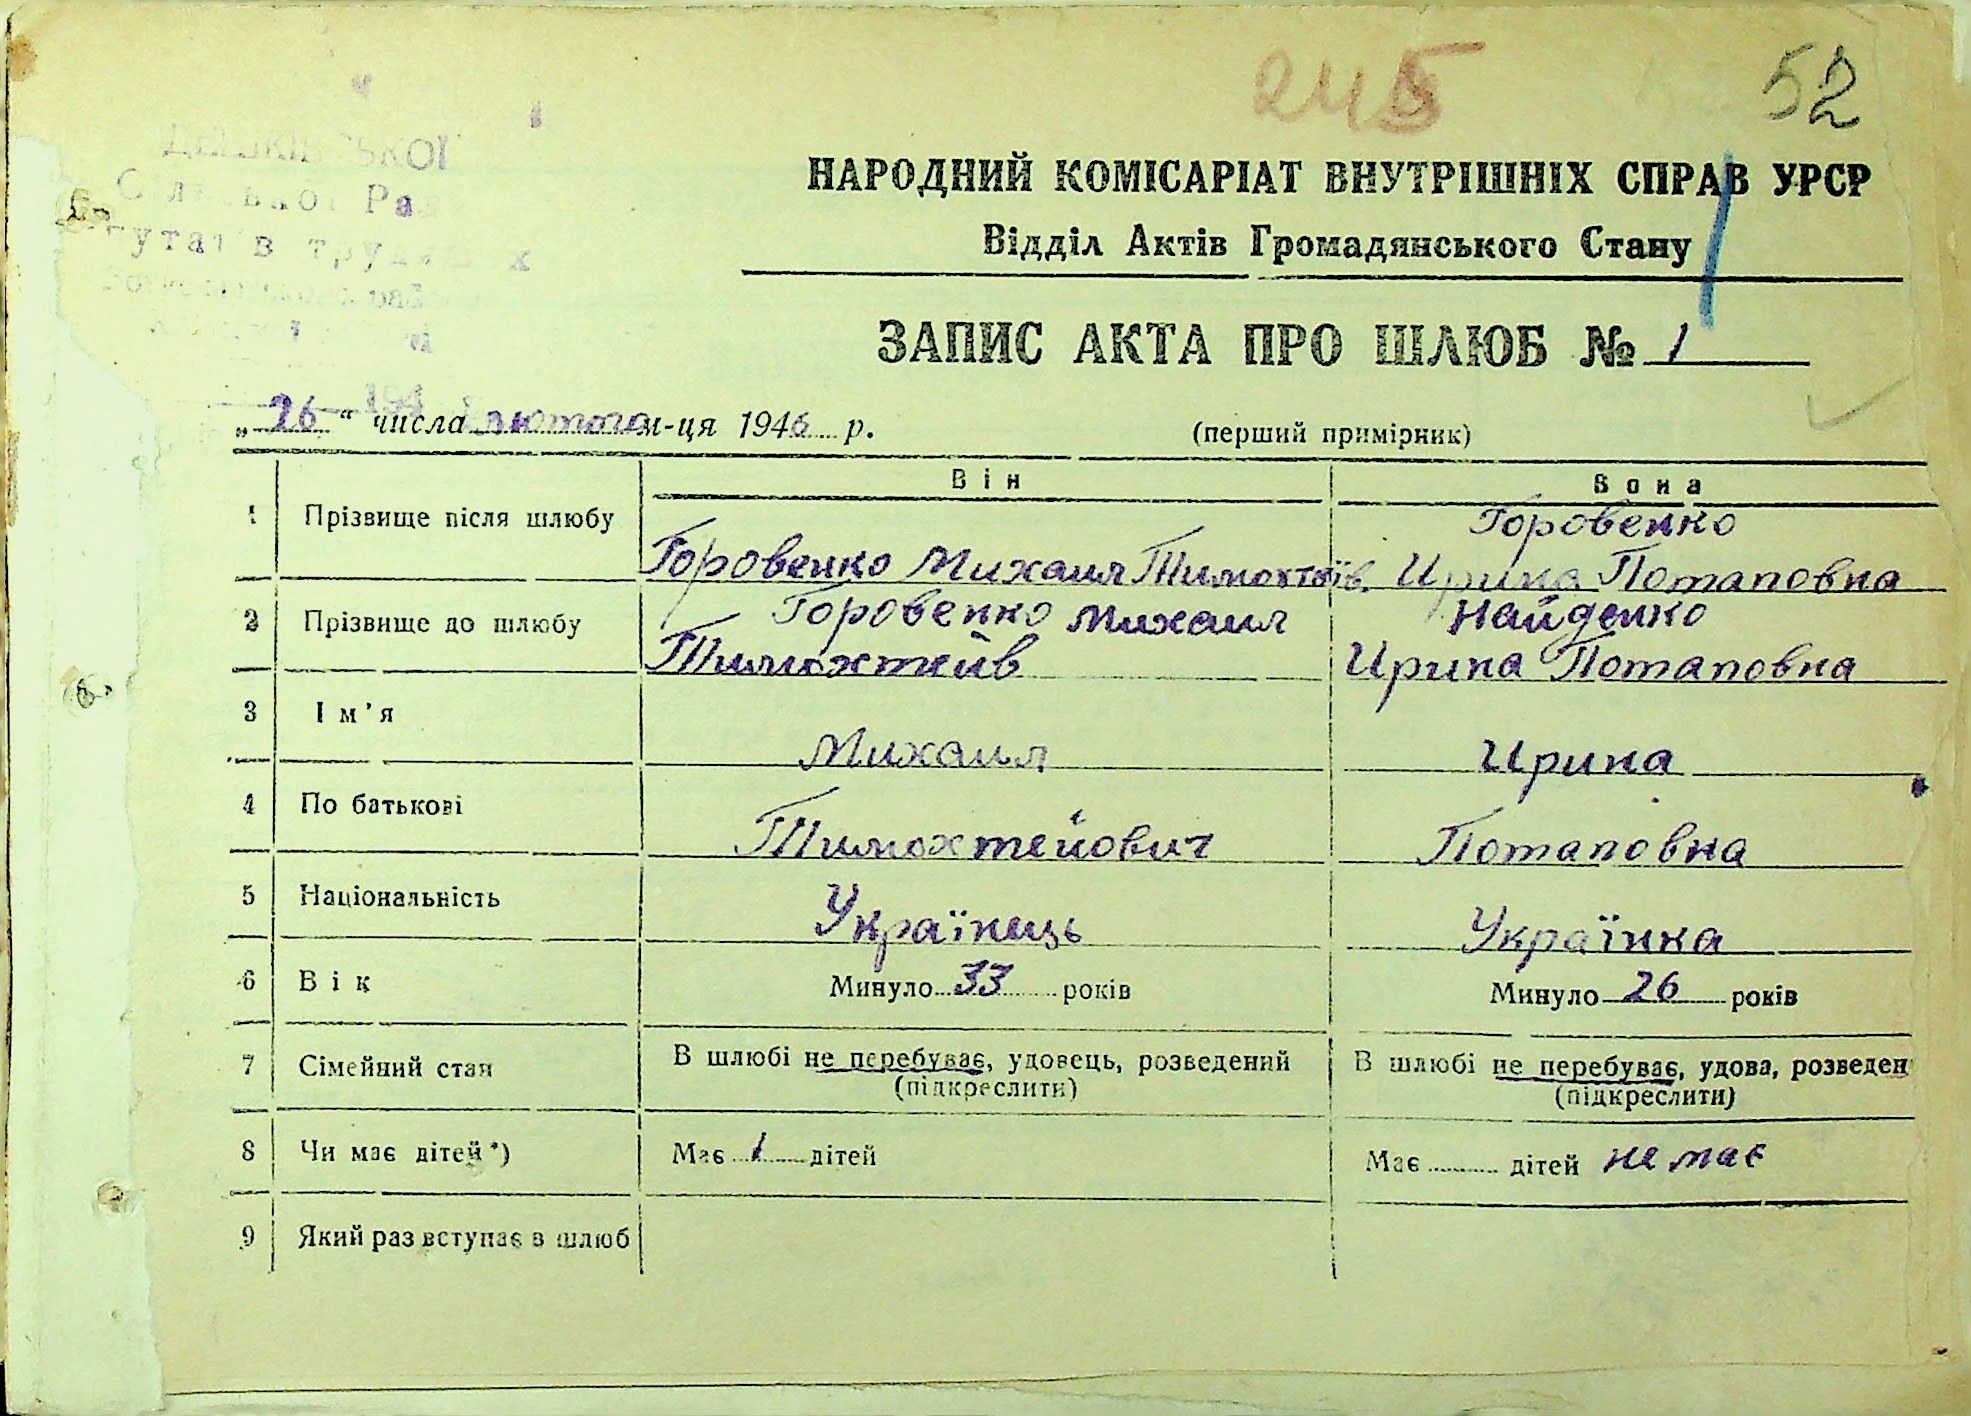 245
52
НАРОДНИЙ КОМІСАРІАТ ВНУТРІШНІХ СПРАВ УРСР
Відділ Актів Громадянського Стану
ЗАПИС АКТА ПРО ШЛЮБ № 1
„26“ числа лютого м-ця 1946 р.
(перший примірник)
Він
Вона
1 Прізвище після шлюбу
Горовенко Михаил Тимохтеїв.
Горовенко
Ирина Потаповна
2 Прізвище до шлюбу
Горовенко Михаил
Тимохтейв
Найденко
Ирина Потаповна
3 Ім'я Михаил Ирина
4 По батькові Тимохтейович Потаповна
5 Національність Українець Українка
6 Вік Минуло 33 років Минуло 26 років
7 Сімейний стан В шлюбі не перебуває, удовець, розведений В шлюбі не перебуває, удова, розведен
(підкреслити) (підкреслити)
8 Чи має дітей*) Має 1 дітей Має дітей не має
9 Який раз вступає в шлюб